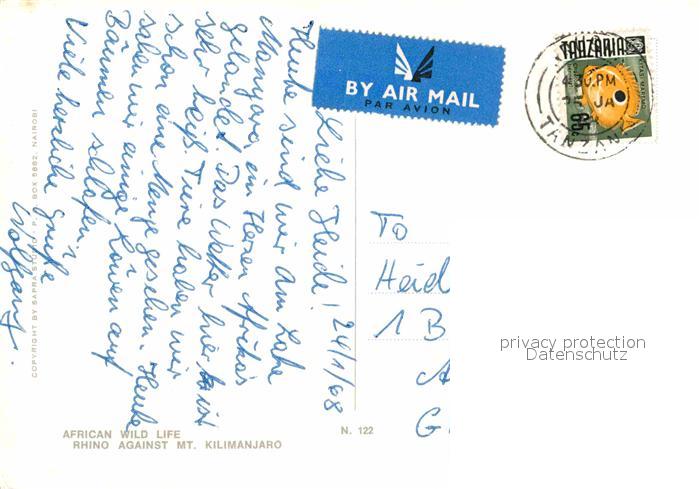 Liebe Heidi! 24/1/68
Heute sind wir am Lake
Manyara, im Herzen Afrikas
gelandet. Das Wetter hier ist
sehr heiß. Tiere haben wir
schon eine Menge gesehen. Heute
sahen wir einige Löwen auf
Bäumen schlafen.
Viele herzliche Grüße
Wolfgang.
BY AIR MAIL
PAR AVION
TANZANIA
65c
PM
JA
TANZAN
To
Heid
1 B
A
G
privacy protection
Datenschutz
COPYRIGHT BY SAPRA STUDIO P. BOX 5882, NAIROBI
AFRICAN WILD LIFE
RHINO AGAINST MT. KILIMANJARO
N. 122